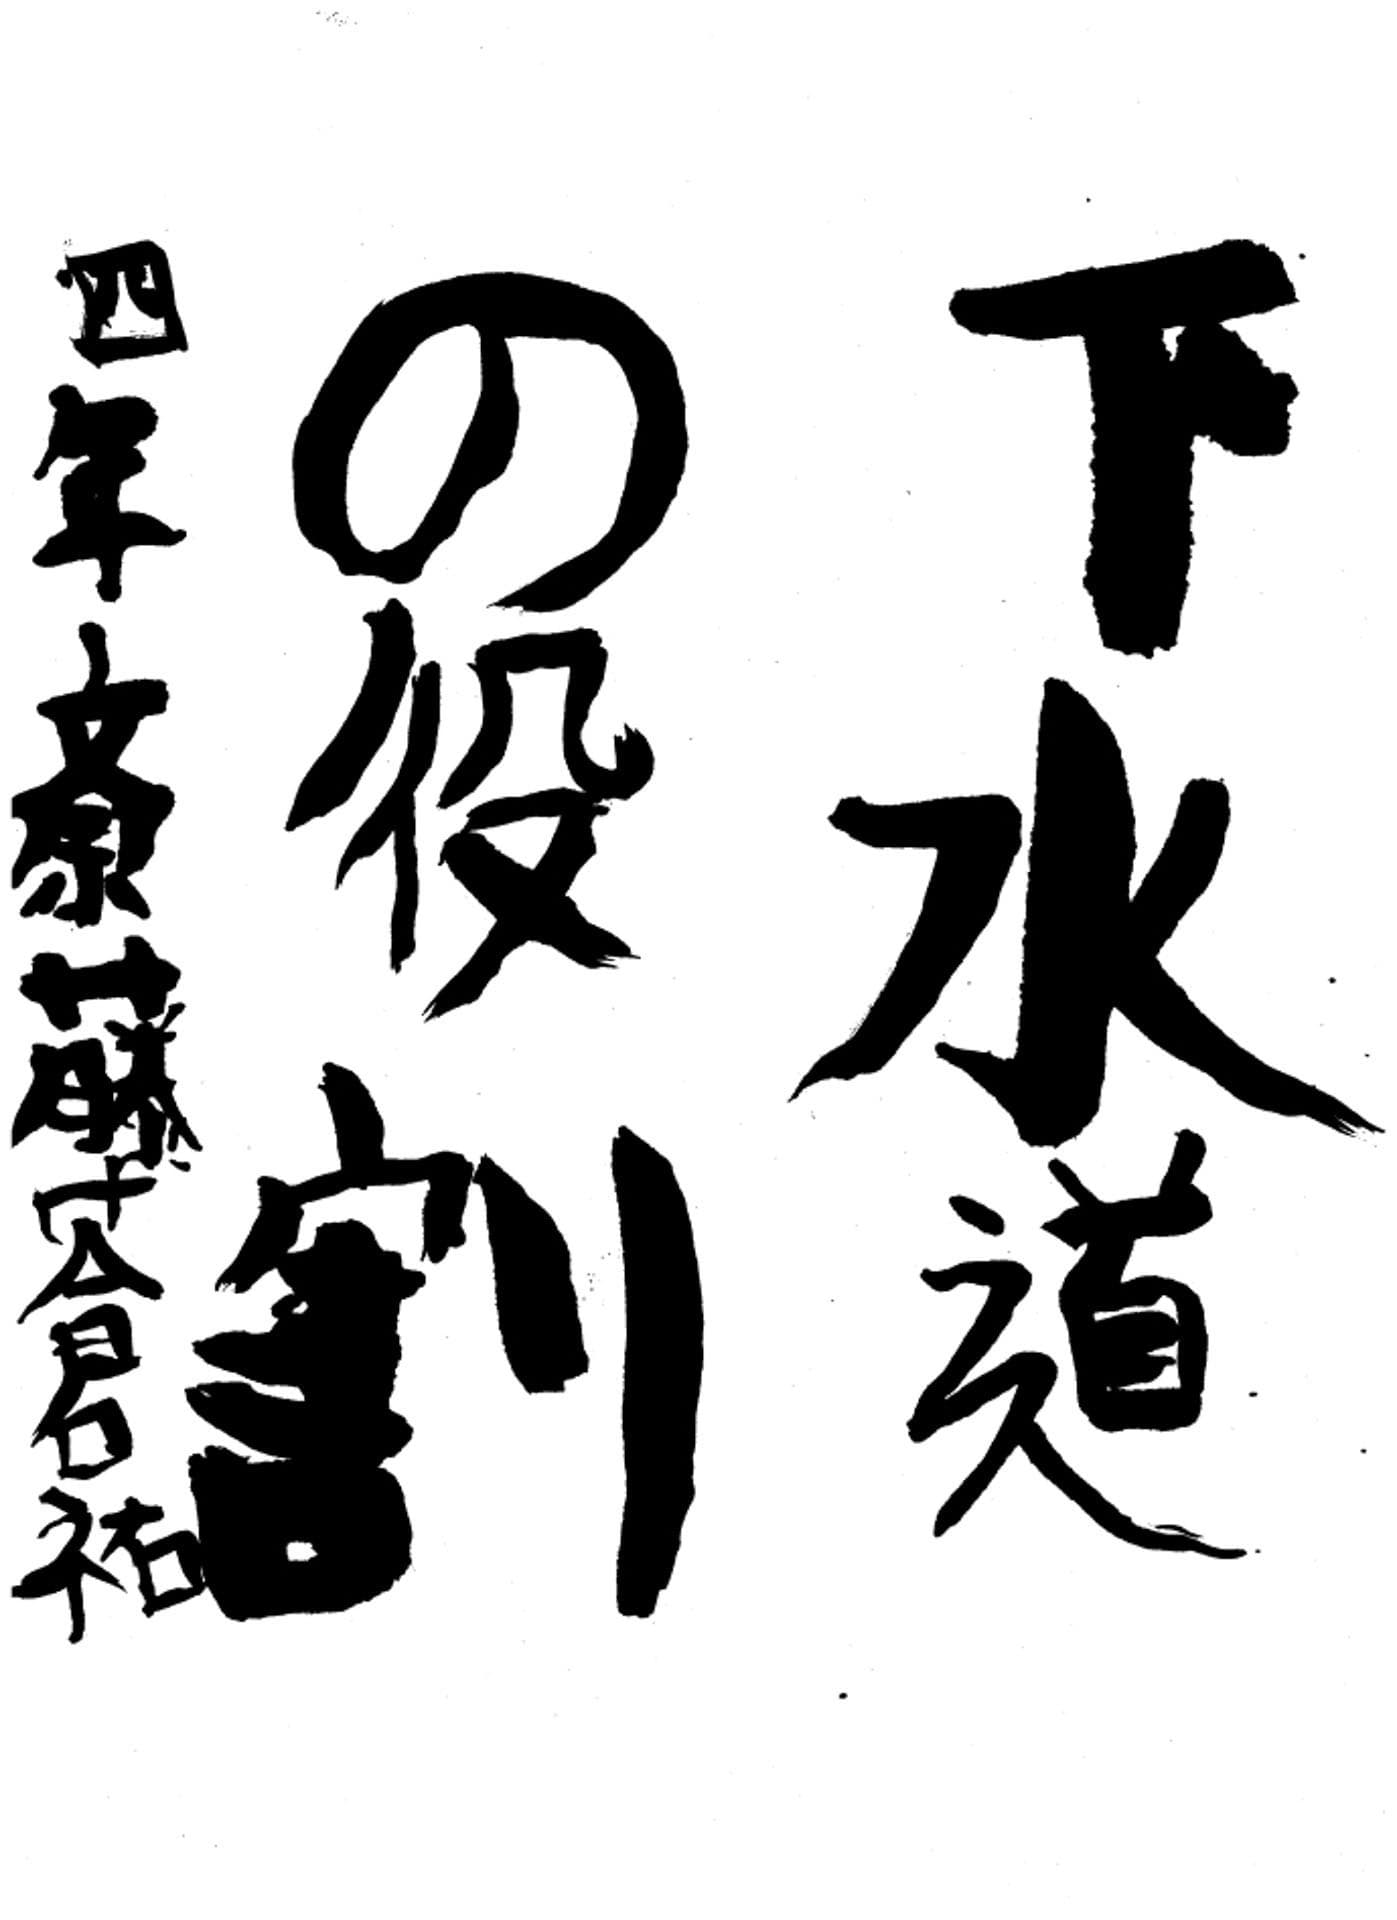 下水道
の役割
四年 斎藤蒼祐